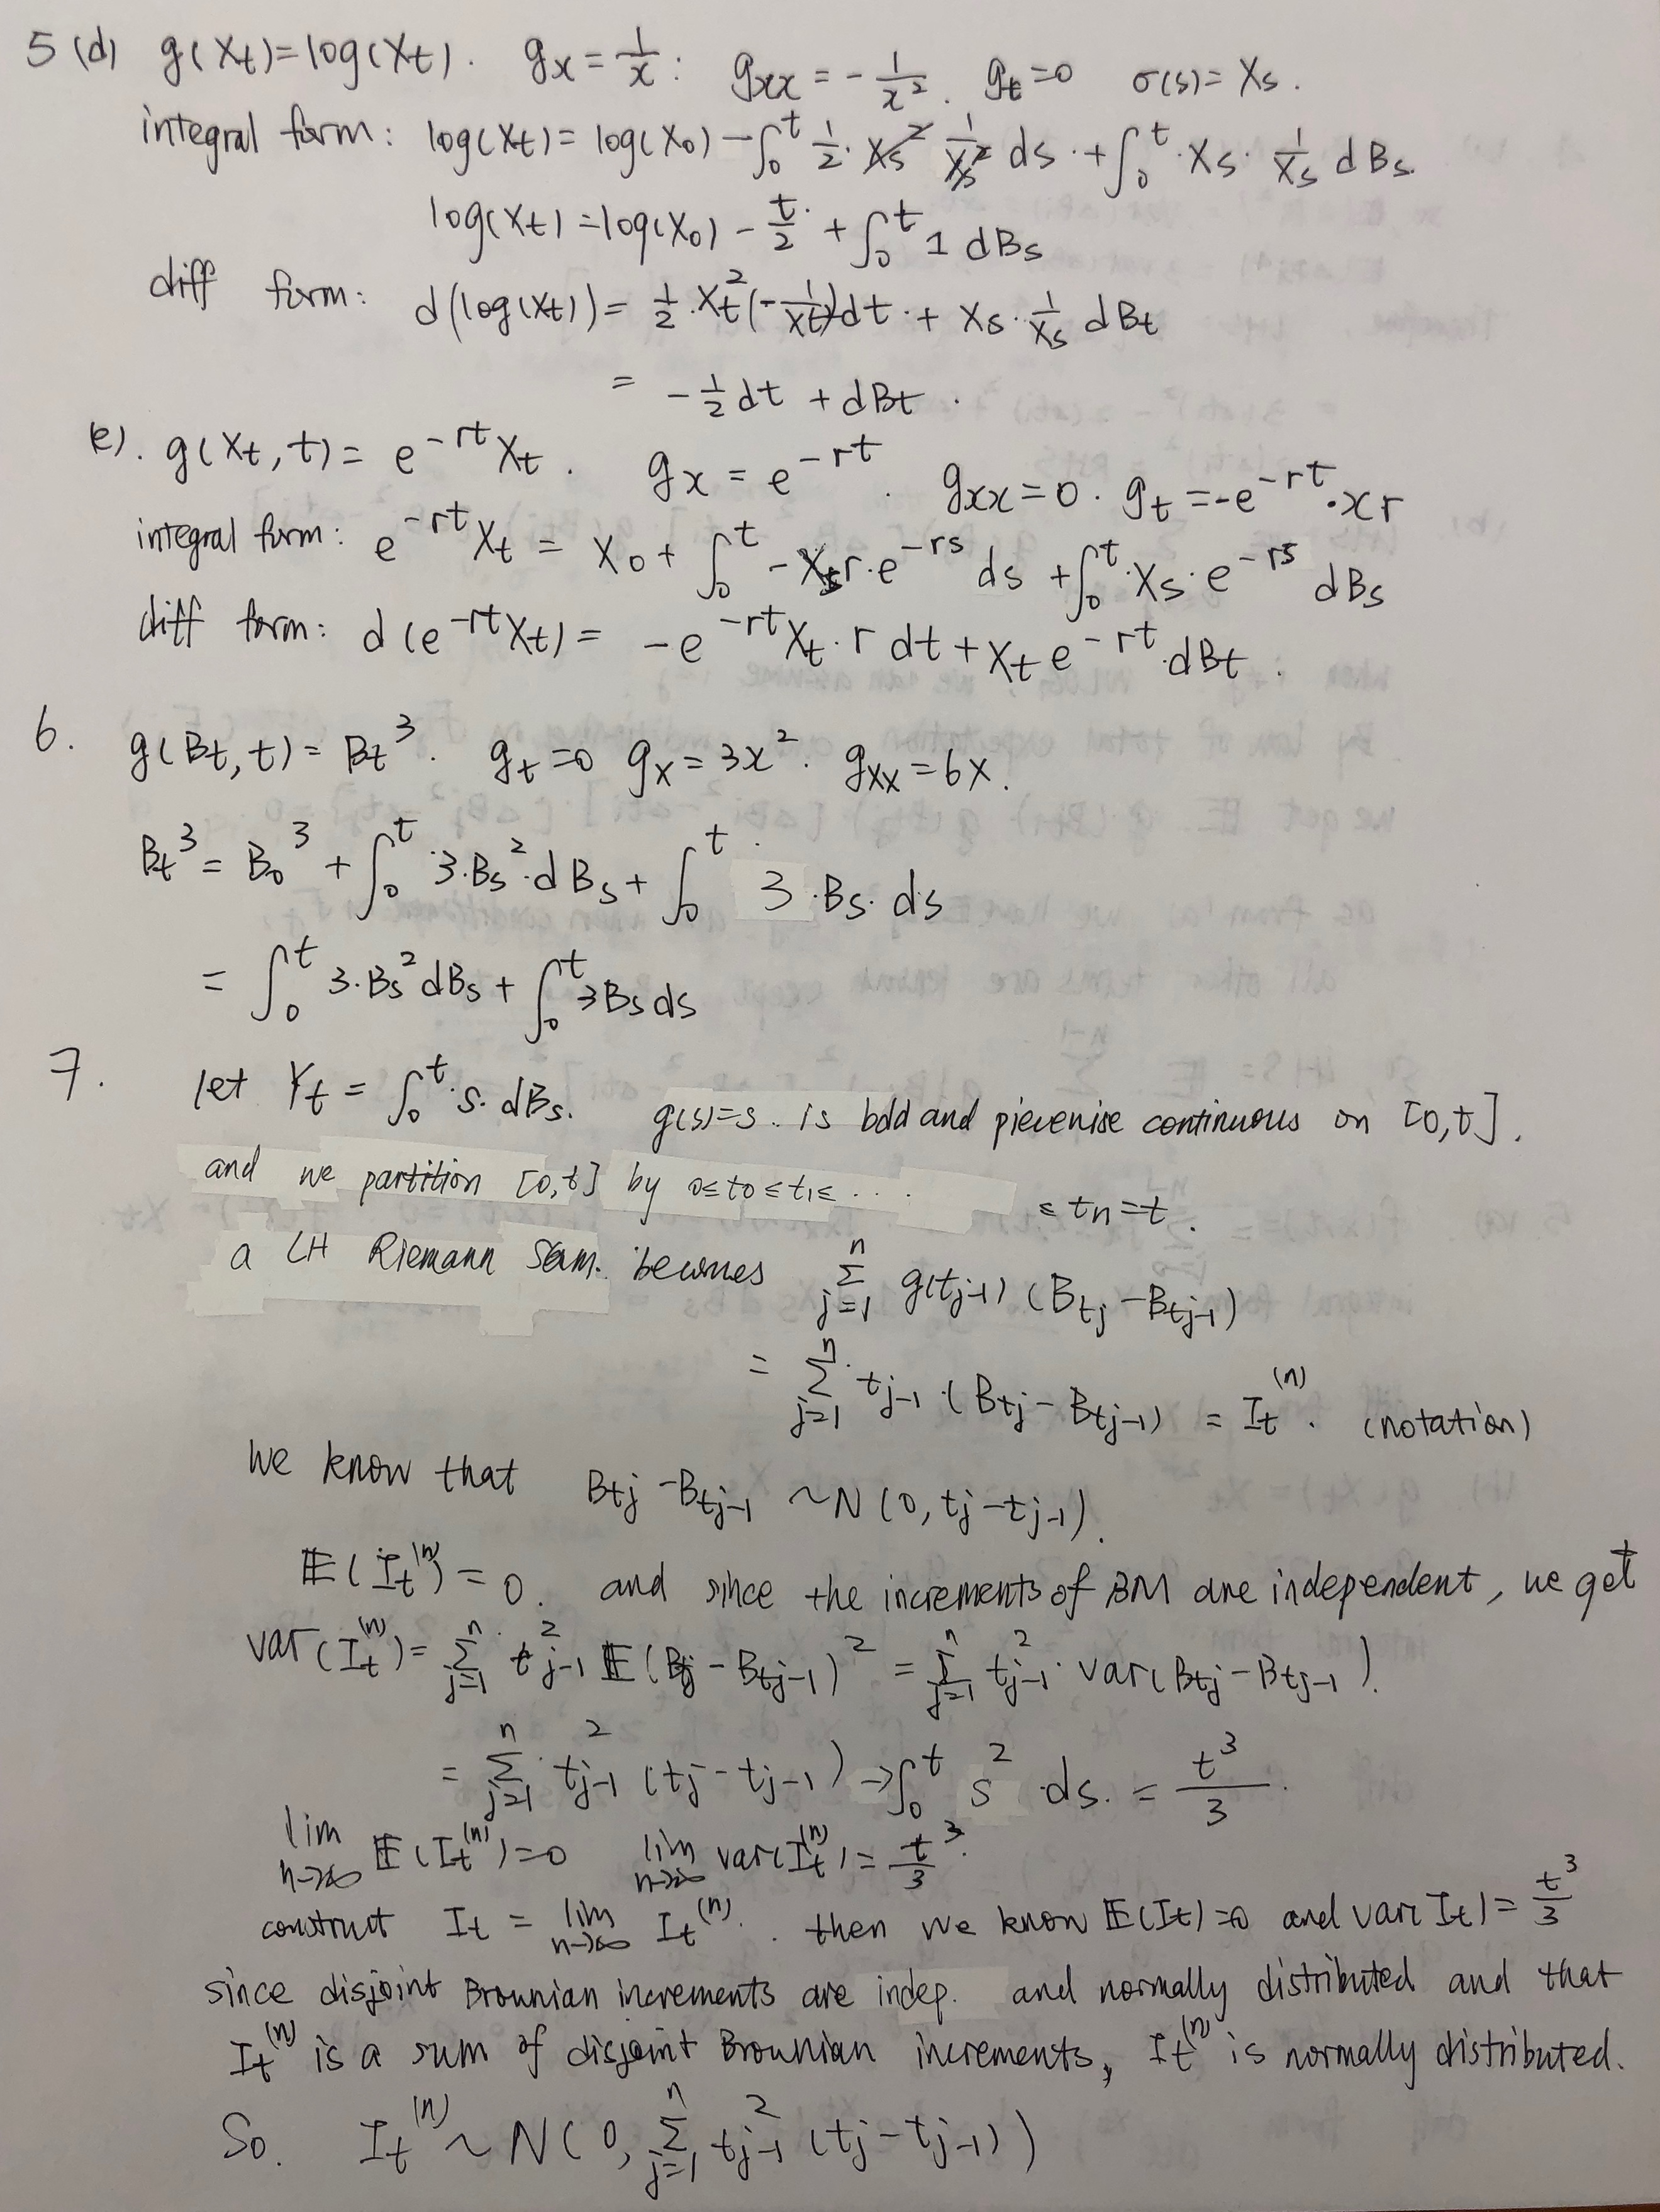 5 (d) g(Xt)=log(Xt). gx = 1/x : gxx = - 1/x². gt=0 σ(s)= Xs.
integral form: log(Xt) = log(X0) - ∫₀ᵗ 1/2 · Xs² 1/Xs² ds + ∫₀ᵗ · Xs · 1/Xs dBs.
log(Xt) = log(X0) - t/2 + ∫₀ᵗ 1 dBs
diff form: d(log(Xt)) = 1/2 · Xt² (- 1/Xt²) dt + Xs · 1/Xs dBt
= - 1/2 dt + dBt.
(e). g(Xt, t) = e^{-rt} Xt. gx = e^{-rt}. gxx=0. gt = -e^{-rt}·xr
integral form: e^{-rt} Xt = X0 + ∫₀ᵗ - Xs r·e^{-rs} ds + ∫₀ᵗ · Xs · e^{-rs} dBs
diff form: d(e^{-rt} Xt) = -e^{-rt} Xt · r dt + Xt e^{-rt} · dBt.
6. g(Bt, t) = Bt³. gt=0 gx = 3x². gxx = 6x.
Bt³ = B0³ + ∫₀ᵗ 3·Bs² · dBs + ∫₀ᵗ 3 · Bs · ds
= ∫₀ᵗ 3·Bs² dBs + ∫₀ᵗ 3Bs ds
7. let Yt = ∫₀ᵗ · s · dBs. g(s)=s. is bdd and piecewise continuous on [0,t].
and we partition [0,t] by 0≤t0≤t1≤ ... ≤ tn=t.
a LH Riemann Sum. becomes Σ_{j=1}^{n} g(tj-1) (Btj - Btj-1)
= Σ_{j=1}^{n} tj-1 · (Btj - Btj-1) = It^(n). (notation)
We know that Btj - Btj-1 ~ N(0, tj - tj-1).
𝔼(It^(n)) = 0. and since the increments of BM are independent, we get
var(It^(n)) = Σ_{j=1}^{n} t²j-1 𝔼(Bj - Btj-1)² = Σ_{j=1}^{n} t²j-1 · var(Btj - Btj-1).
= Σ_{j=1}^{n} t²j-1 (tj - tj-1) → ∫₀ᵗ s² ds. = t³/3.
lim n→∞ 𝔼(It^(n))=0 lim n→∞ var(It^(n)) = t³/3.
construct It = lim n→∞ It^(n). then we know 𝔼(It)=0 and var(It) = t³/3
since disjoint Brownian increments are indep. and normally distributed and that
It^(n) is a sum of disjoint Brownian increments, It^(n) is normally distributed.
So. It^(n) ~ N(0, Σ_{j=1}^{n} t²j-1 (tj - tj-1))